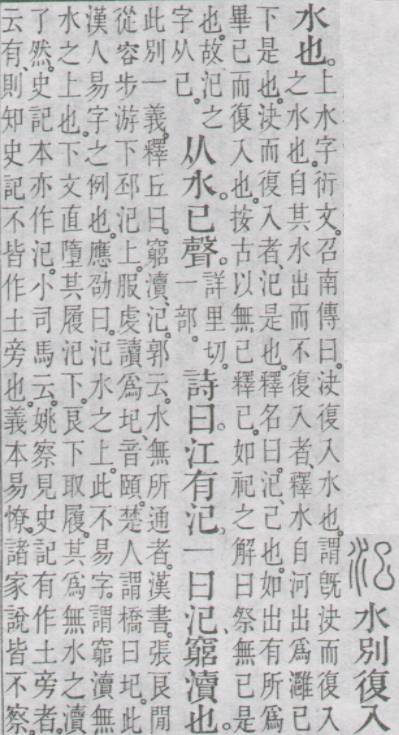 汜 水別復入
水也。
上水字衍文。召南傳曰。決復入水也。謂旣決而復入
之水也自其水出而不復入者、釋水自河出爲灉已
下是也。決而復入者、汜是也。釋名曰。汜、已也。如出有所爲
畢已而復入也。按古以無已釋已。如祀之解曰祭無已是
也。故汜之
字从已。
从水。已聲。
詳里切。
一部。
詩曰。江有汜。一曰汜、窮瀆也。
此別一義。釋丘曰。窮瀆、汜。郭云。水無所通者。漢書。張良閒
從容步游下邳汜上。服虔讀爲圯、音頤。楚人謂橋曰圯。此
漢人易字之例也。應劭曰。汜水之上。此不易字。謂窮瀆無
水之上也。下文直墮其履汜下。良下取履。其爲無水之瀆
了然。史記本亦作汜。小司馬云。姚察見史記有作土旁者。
云有、則知史記不皆作土旁也。義本易憭。諸家說皆不察。